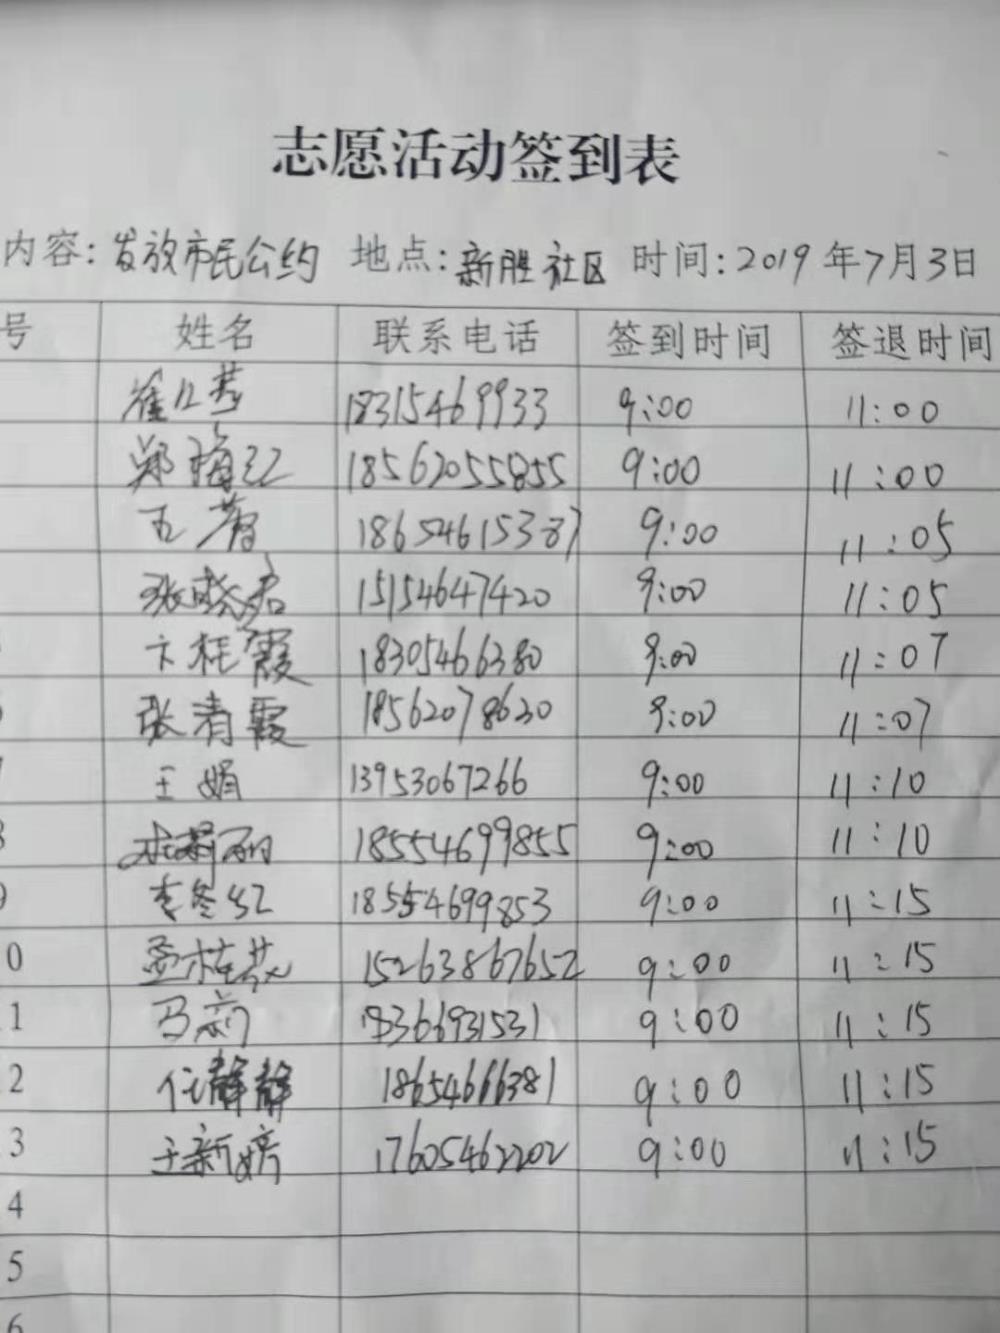 志愿活动签到表
内容:发放市民公约 地点:新胜社区 时间:2019年7月3日
号 姓名 联系电话 签到时间 签退时间
18315469933 9:00 11:00
郑梅红 18562055855 9:00 11:00
王菁 18654615387 9:00 11:05
张晓君 15154647420 9:00 11:05
卞桂霞 18305466380 9:00 11:07
张青霞 18562078630 9:00 11:07
王娟 13953067266 9:00 11:10
18554699855 9:00 11:10
9 李冬红 18554699853 9:00 11:15
0 孟桂芬 15263867652 9:00 11:15
1 马莉 18366931531 9:00 11:15
2 任静静 18654666381 9:00 11:15
3 王新婷 17605462202 9:00 11:15
4
5
6